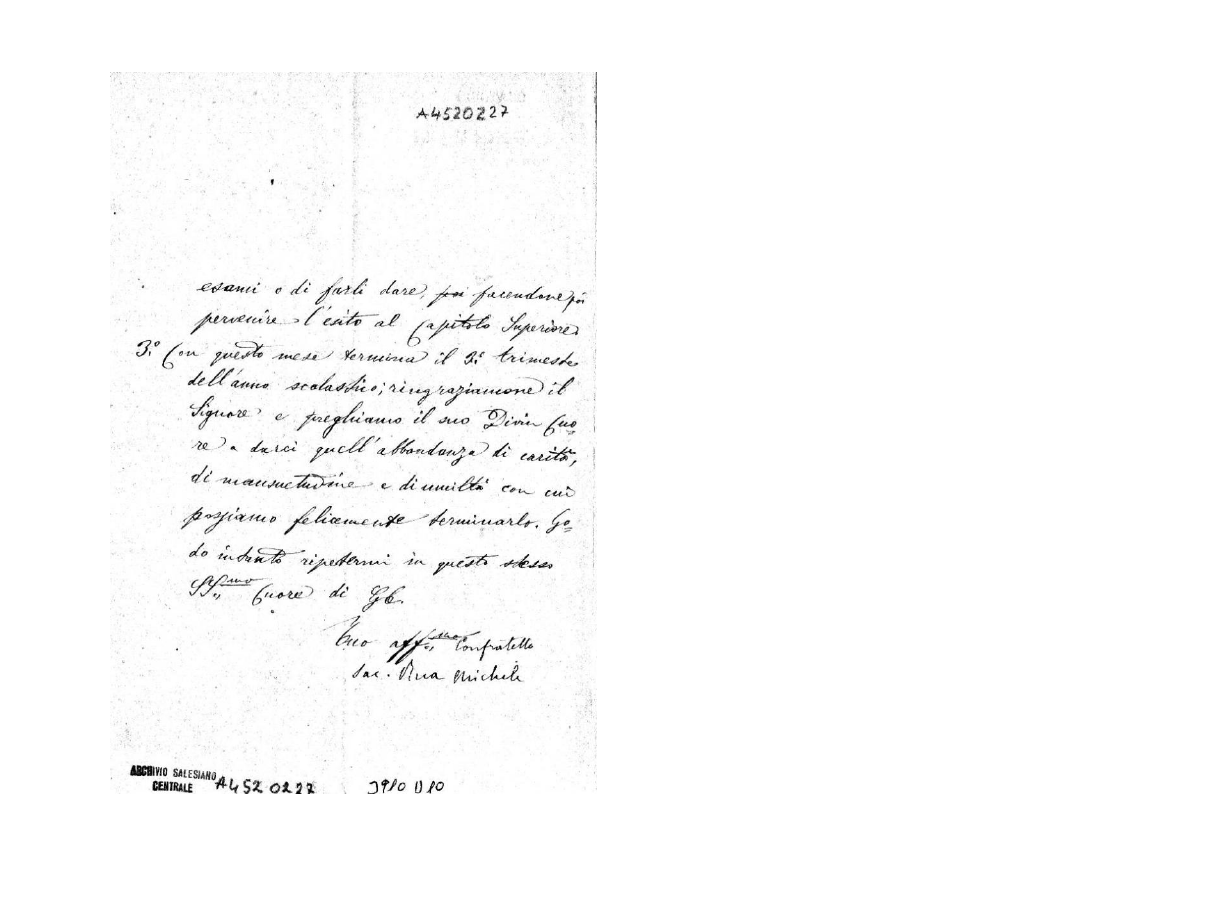 A4520227
esami o di farli dare, poi facendone poi
pervenire l'esito al Capitolo Superiore
3.° Con questo mese termina il 3.° trimestre
dell'anno scolastico; ringraziamone il
Signore e preghiamo il suo Divin Cuo=
re a darci quell'abbondanza di carità,
di mansuetudine e di umiltà con cui
possiamo felicemente terminarlo. Go=
do intanto ripetermi in questo stesso
SS.mo Cuore di G.
Tuo aff.mo Confratello
Sac. Rua Michele
ARCHIVIO SALESIANO
CENTRALE A4520227